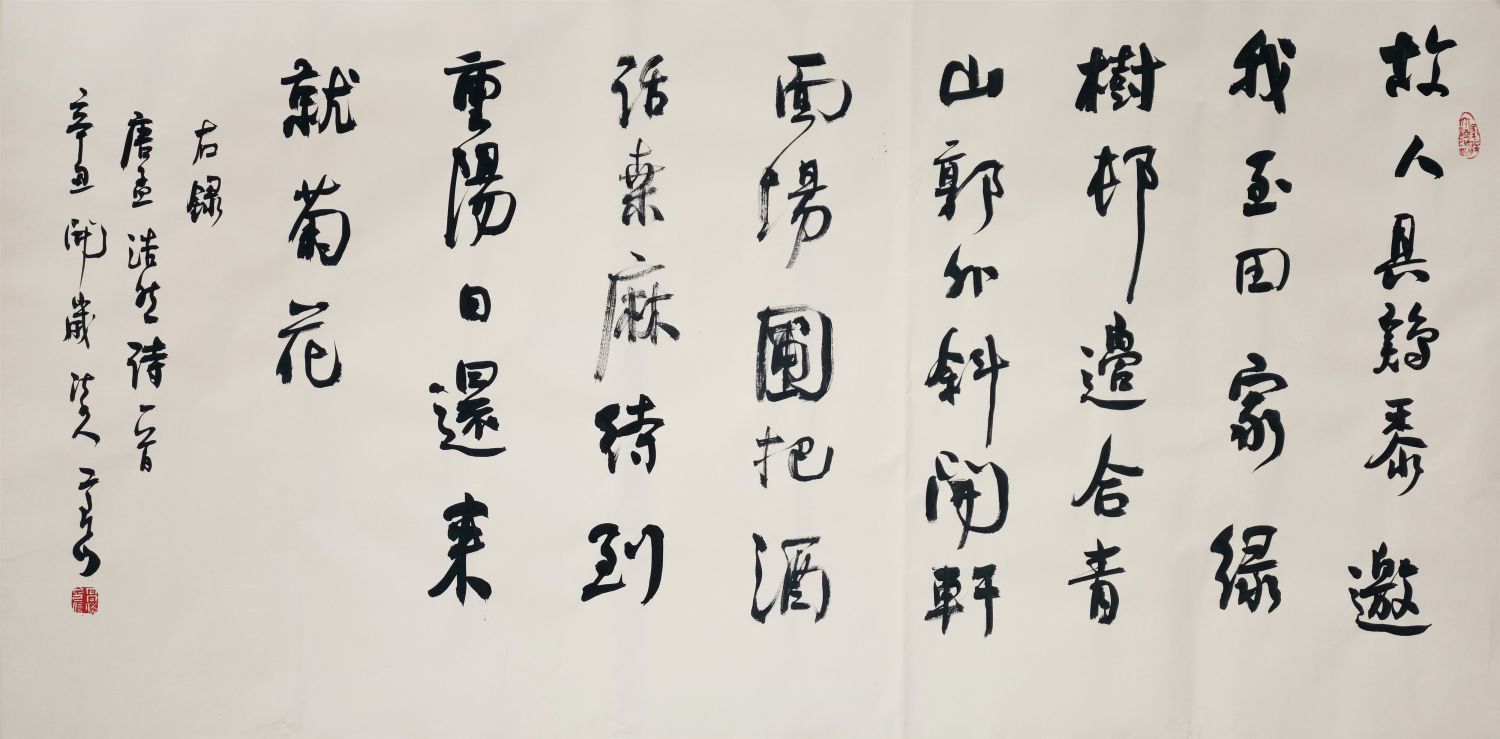 故人具鷄黍邀
我至田家緑
樹邨邊合青
山郭外斜開軒
面場圃把酒
話桑麻待到
重陽日還來
就菊花
右録
唐孟浩然詩一首
辛丑開歲